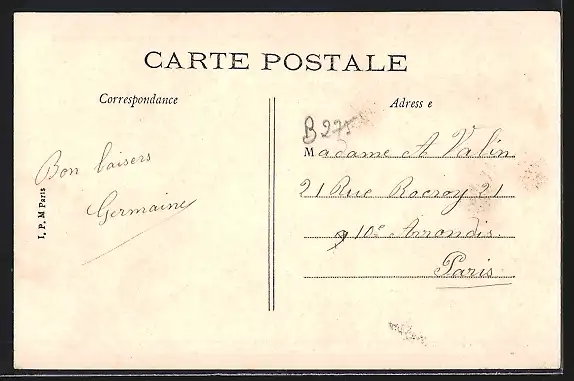 CARTE POSTALE
Correspondance
Adresse
B 275
Madame A Valin
21 Rue Rocroy 21
10e Arrondis.
Paris
Bon baisers
Germaine
I. P. M Paris